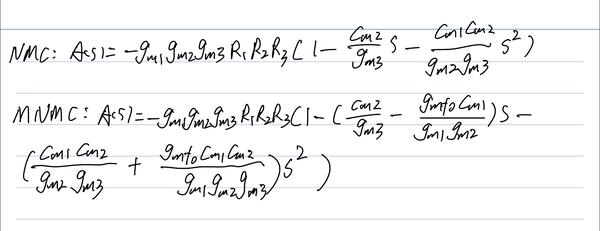 NMC: A(s) = -gm1 gm2 gm3 R1 R2 R3 (1 - Cm2/gm3 s - Cm1 Cm2/gm2 gm3 s²)
MNMC: A(s) = -gm1 gm2 gm3 R1 R2 R3 (1 - (Cm2/gm3 - gmf0 Cm1/gm1 gm2) s -
(Cm1 Cm2/gm2 gm3 + gmf0 Cm1 Cm2/gm1 gm2 gm3) s²)